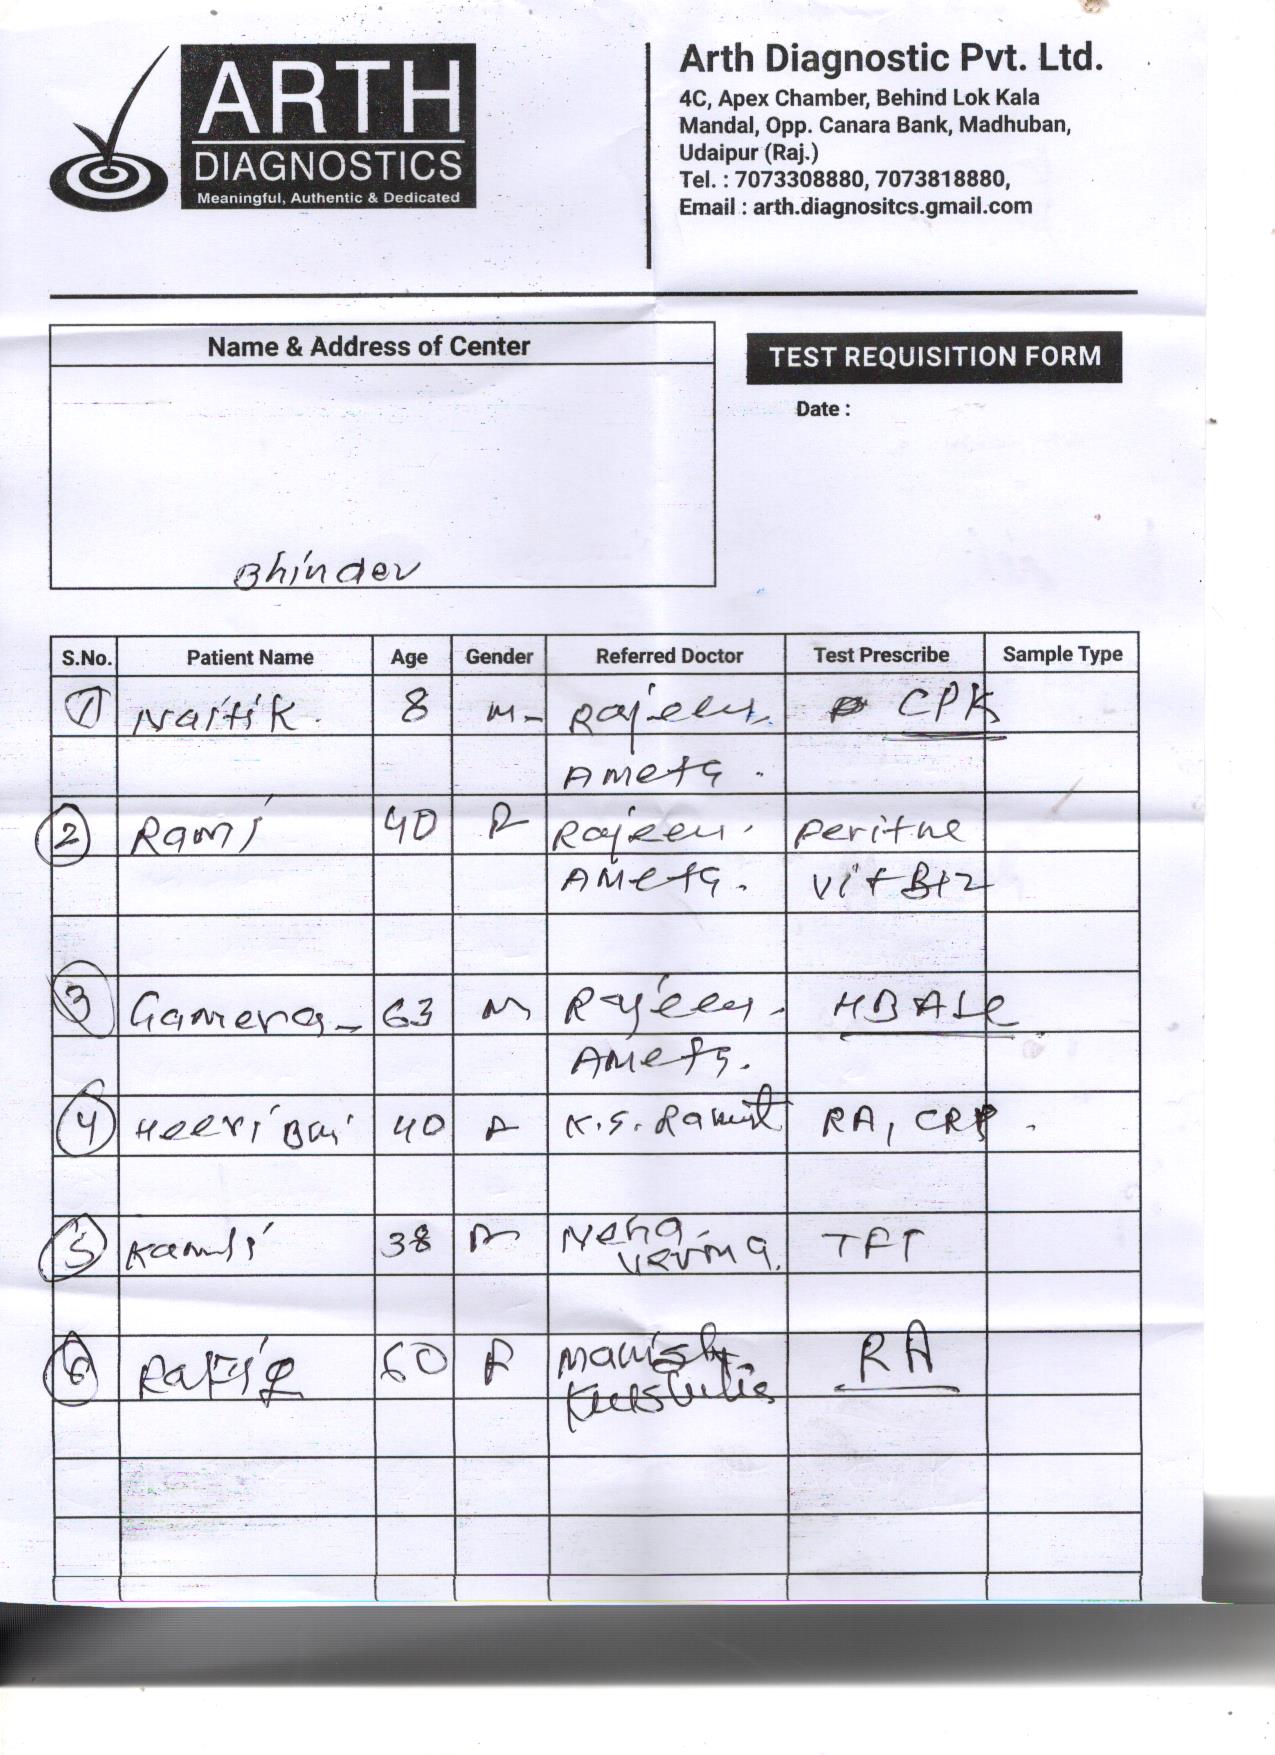 ARTH
DIAGNOSTICS
Meaningful, Authentic & Dedicated
Arth Diagnostic Pvt. Ltd.
4C, Apex Chamber, Behind Lok Kala
Mandal, Opp. Canara Bank, Madhuban,
Udaipur (Raj.)
Tel. : 7073308880, 7073818880,
Email : arth.diagnositcs.gmail.com
Name & Address of Center
TEST REQUISITION FORM
Date :
Bhinder
S.No. Patient Name Age Gender Referred Doctor Test Prescribe Sample Type
1 Naitik. 8 M- Rajeev CPK
Ameta.
2 Rami 40 F Rajeev. Peritne
Ameta. Vit B12
3 Gamera 63 M Rajeev. HBA1c
Ameta.
4 Heeri Bai 40 F K.S. RA, CRP.
5 Kamli 38 F Neha TFT
Verma.
6 60 F Manish RA